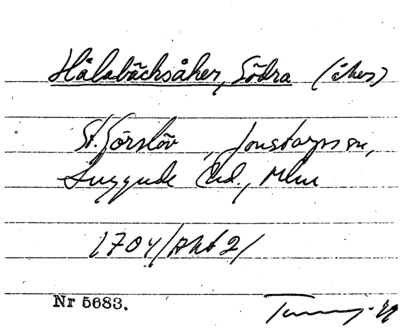 Hålabäcksåker, Södra (åker)
St. Görslöv, Jonstorps sn,
Luggude hd., Mlm
1704/Akt 2/
Nr 5683.